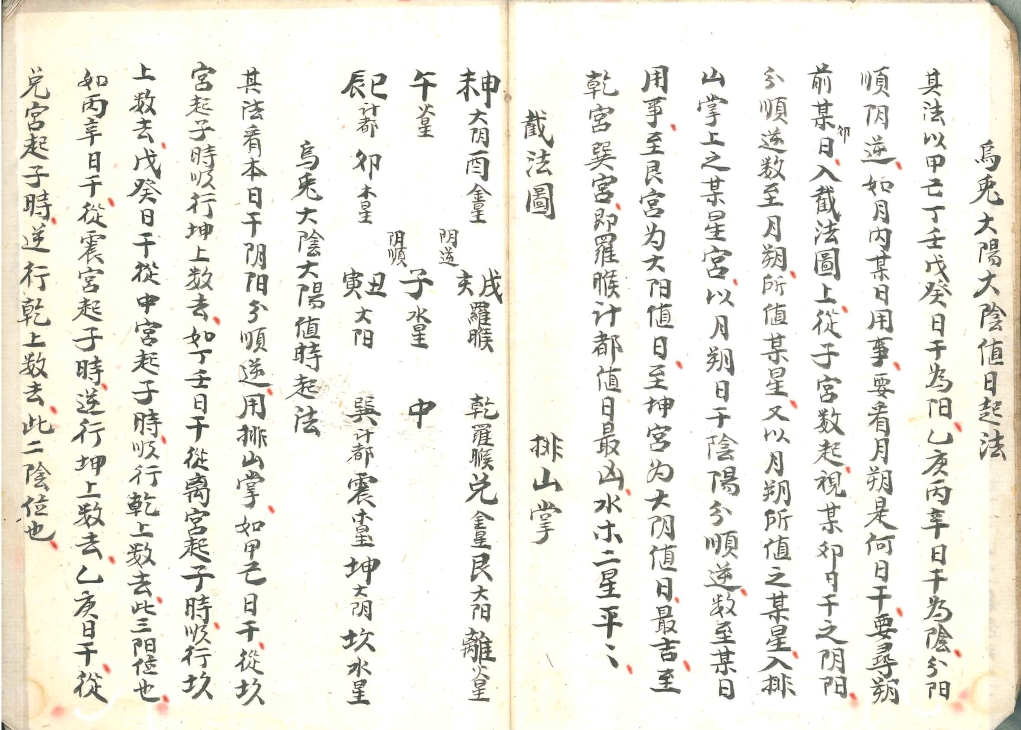 烏兎大陽大陰值日起法
其法以甲己丁壬戊癸日干為阳乙庚丙辛日干為陰分阳
順阴逆如月內某日用事要看月朔是何日干要尋朔
前某卯日入截法圖上從子宮数起視某卯日干之阴阳
分順逆数至月朔所值某星又以月朔所值之某星入排
山掌上之某星宮以月朔日干陰陽分順逆数至某日
用事至艮宮为大阳值日至坤宮为大阴值日最吉至
乾宮巽宮即羅睺計都值日最凶水木二星平〻
截法圖 排山掌
未申大阴酉金星 戌亥羅睺 乾羅睺兌金星艮大阳離火星
阴逆
午火星 子水星 中
阴順
辰巳計都卯木星 寅丑大阳 巽計都震木星坤大阴坎水星
烏兎大陰大陽值時起法
其法看本日干阴阳分順逆用排山掌如甲己日干從坎
宮起子時順行坤上数去如丁壬日干從离宮起子時順行坎
上数去戊癸日干從中宮起子時順行乾上数去此三阳位也
如丙辛日干從震宮起子時逆行坤上数去乙庚日干從
兌宮起子時逆行乾上数去此二陰位也